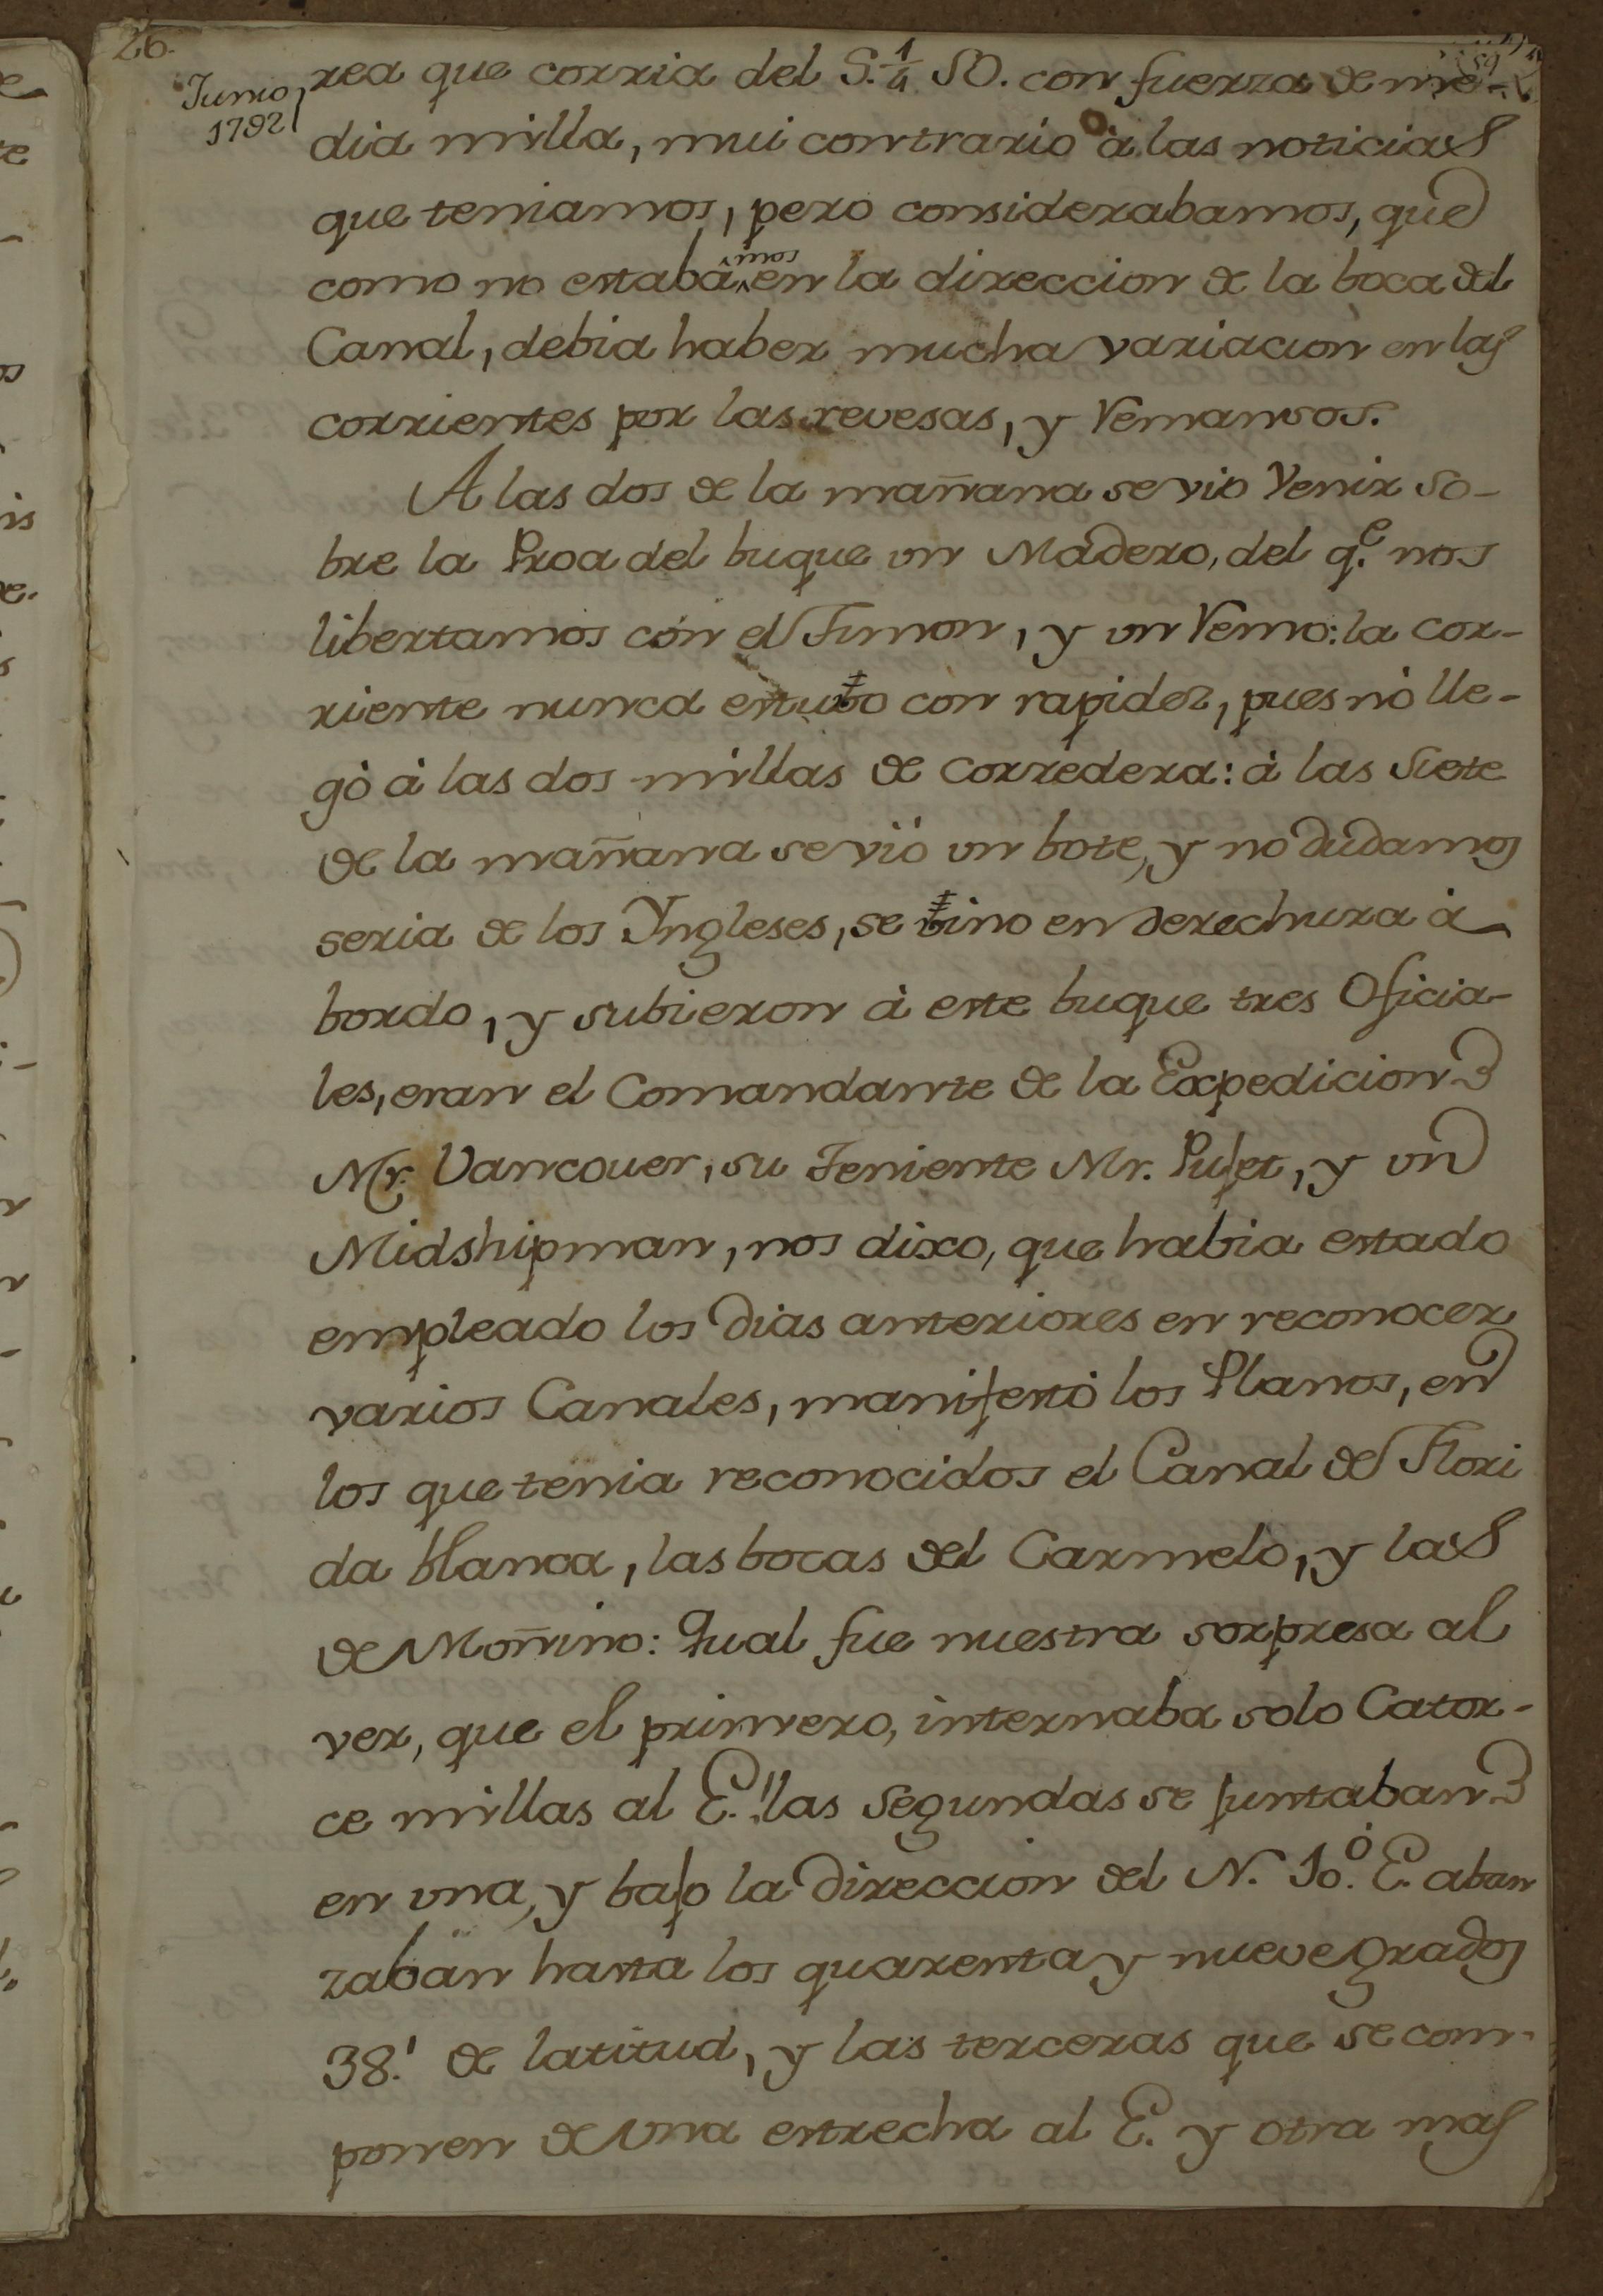 26.
Junio
1792
rea que corria del S. 1/4 SO. con fuerza de me-
dia milla, mui contrario à las noticias
que teniamos, pero considerabamos, que
como no estabamos en la direccion de la boca del
Canal, debia haber mucha variacion en las
corrientes por las revesas, y Remansos.
A las dos de la mañana se vio Venir so-
bre la Proa del buque un Madero, del q.e nos
libertamos con el Timon, y un Remo: la cor-
riente nunca estubo con rapidez, pues no lle-
gò à las dos millas de Corredera: à las Siete
de la mañana se viò un bote, y no dudamos
seria de los Yngleses, se vino en derechura à
bordo, y subieron à este buque tres Oficia-
les, eran el Comandante de la Expedicion
Mr. Vancouer, su Teniente Mr. Pujet, y un
Midshipman, nos dixo, que habia estado
empleado los dias anteriores en reconocer
varios Canales, manifestò los Planos, en
los que tenia reconocidos el Canal de Flori
da blanca, las bocas del Carmelo, y las
de Moñino: Qual fue nuestra sorpresa al
ver, que el primero, internaba solo Cator-
ce millas al E. las Segundas se juntaban
en una, y bajo la Direccion del N. 10.º E. aban
zaban hasta los quarenta y nueve grados
38.' de latitud, y las terceras que se com-
ponen de Una estrecha al E. y otra mas